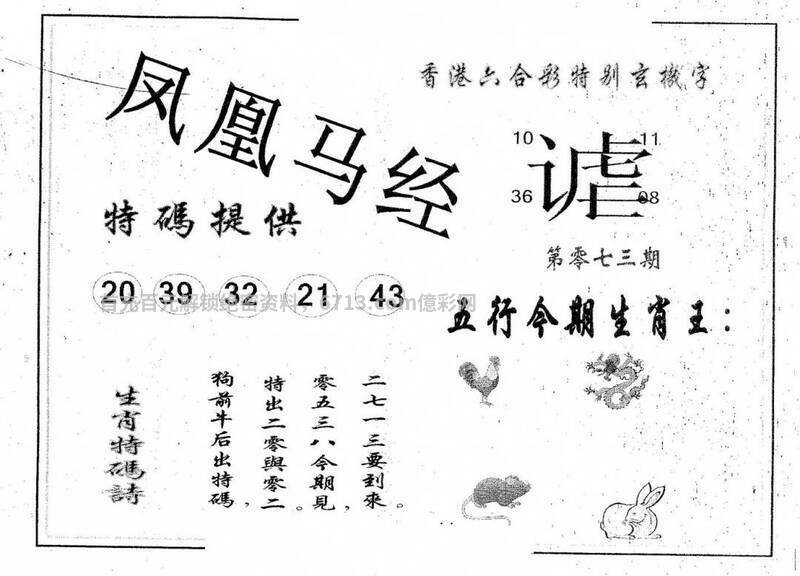 凤凰马经
香港六合彩特别玄機字
特碼提供
10 11
谑
36 08
第零七三期
20 39 32 21 43
五行今期生肖王：
生肖特碼詩
二七一三要到來。
零五三八今期見，
特出二零與零二。
狗前牛后出特碼，